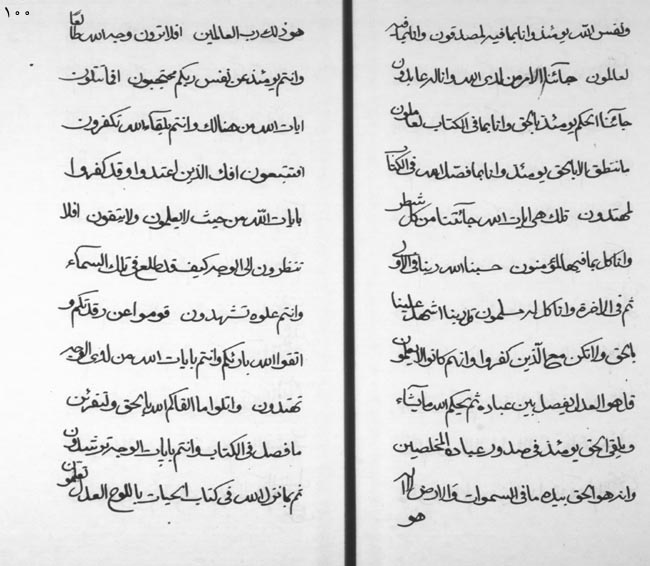 ولنفس الله يومئذ وانا بما فيه لمصدقون وانا بما فيه
لعاملون جائنا الامر من لدى الله وانا له عابدون
جائنا الحكم يومئذ بالحق وانا بما في الكتاب لعاملون
ما ننطق الا بالحق يومئذ وانا بما فصل الله في الكتاب
لمهتدون تلك هي ايات الله جائتنا من كل شطر
وانا كل بما فيها لمؤمنون حسبنا الله ربنا في الاولى
ثم في الاخرة وانا كل له مسلمون قل ربنا اشهد علينا
بالحق ولا تكن مع الذين كفروا وانهم كانوا لا يعلمون
قل هو العدل يفصل بين عباده ثم يحكم الله ما يشاء
ويلقي الحق يومئذ في صدور عباده المخلصين
وانه هو الحق بيده ما في السموات والارض الا
هو
١٠٠
هو ذلك رب العالمين افلا ترون وجه الله طالعا
وانتم يومئذ عن نفس ربكم محتجبون افانتلون
ايات الله من هنالك وانتم بلقاء الله تكفرون
افتتبعون افك الذين اعتدوا وقد كفروا
بايات الله من حيث لا يعلمون ولا يتقون افلا
تنظرون الى الوجه كيف قد طلع في تلك السماء
وانتم علوه تشهدون قوموا عن رقدتكم و
اتقوا الله بارئكم وانتم بايات الله من لدى الوجه
تهتدون واتلوا ما القاكم الله بالحق ولتقرئن
ما فصل في الكتاب وانتم بايات الوجه ترشدون
ثم بما نزل الله في كتاب الحيات باللوح العدل تعلمون